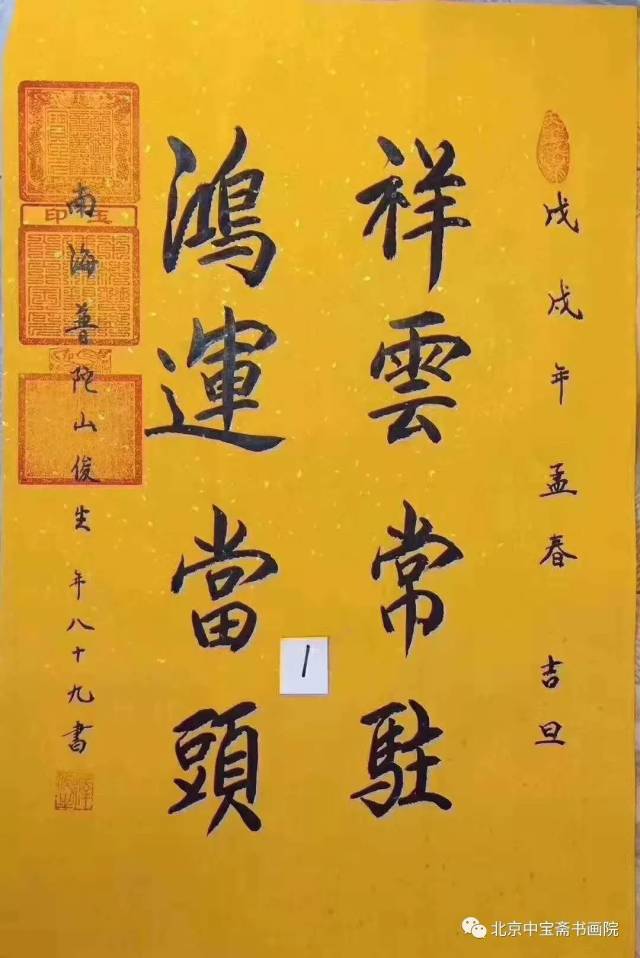 戊戌年孟春 吉旦
祥雲常駐
鴻運當頭
南海普陀山俊生 年八十九書
玉印
1
北京中宝斋书画院